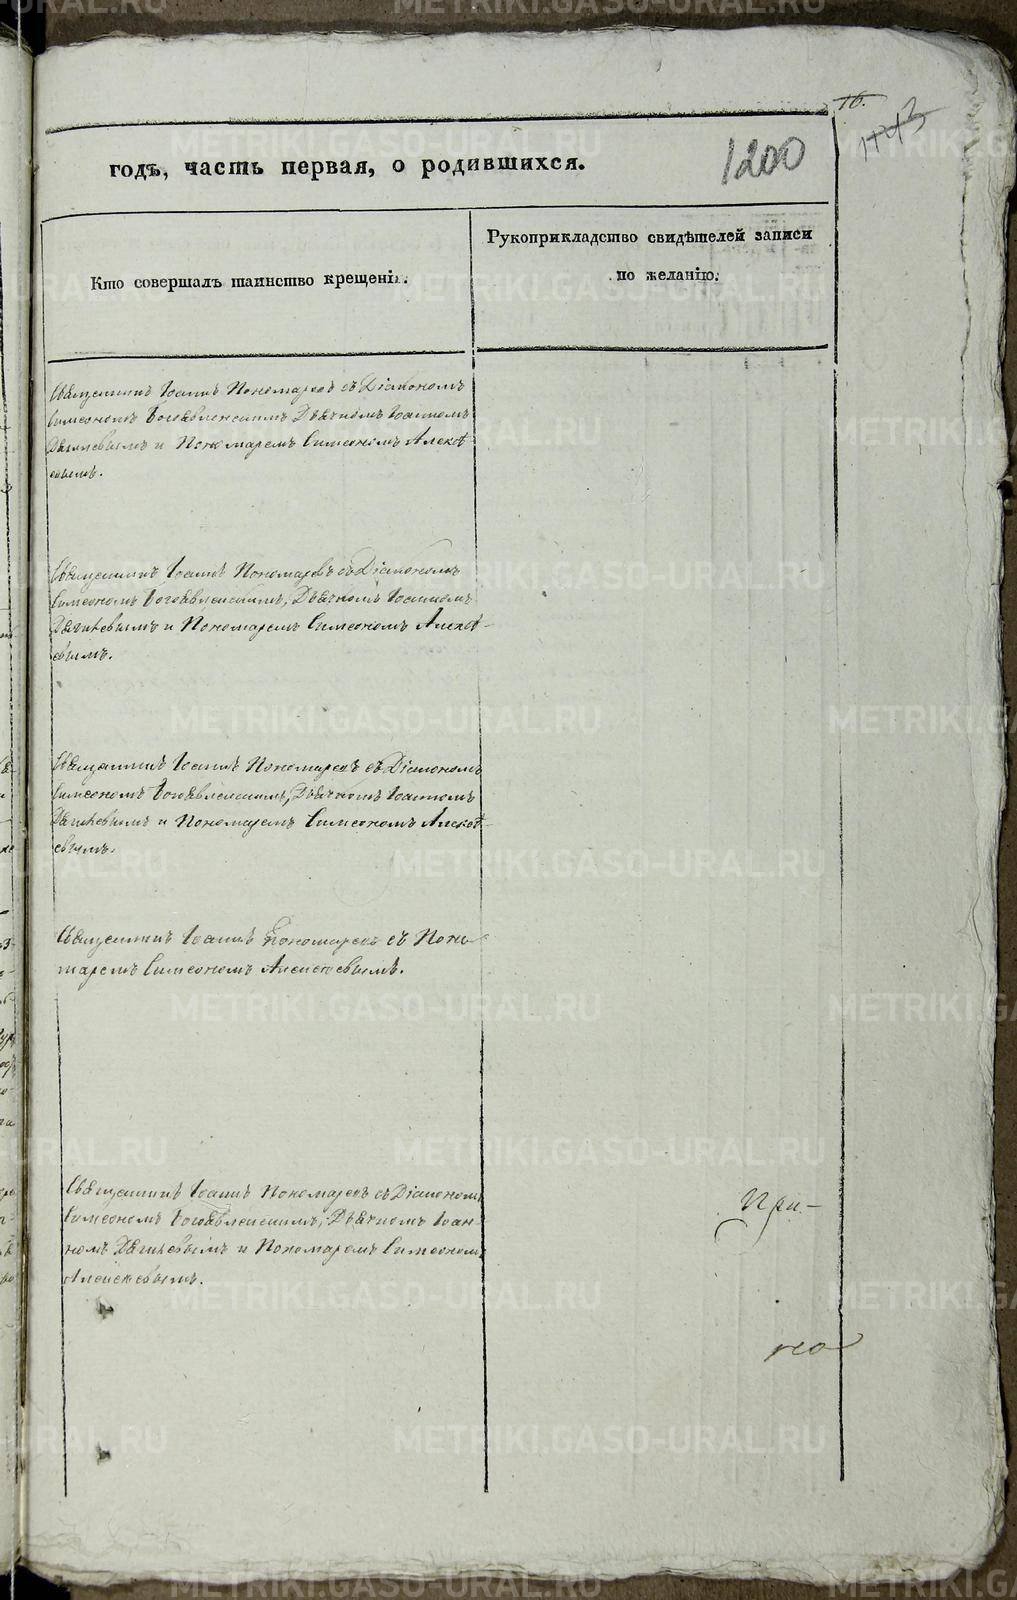 16.
1143
1200
годъ, часть первая, о родившихся.
Кто совершалъ таинство крещенія.
Рукоприкладство свидѣтелей записи
по желанію.
Священникъ Іоаннъ Пономаревъ съ Діакономъ
Симеономъ Богоявленскимъ, Дьячкомъ Іоанномъ
Дягилевымъ и Пономаремъ Симеономъ Алексѣ
евымъ.
Священникъ Іоаннъ Пономаревъ съ Діакономъ
Симеономъ Богоявленскимъ, Дьячкомъ Іоанномъ
Дягилевымъ и Пономаремъ Симеономъ Алексѣ-
евымъ.
Священникъ Іоаннъ Пономаревъ съ Діакономъ
Симеономъ Богоявленскимъ, Дьячкомъ Іоанномъ
Дягилевымъ и Пономаремъ Симеономъ Алексѣ-
евымъ.
Священникъ Іоаннъ Пономаревъ съ Поно-
маремъ Симеономъ Алексѣевымъ.
Священникъ Іоаннъ Пономаревъ съ Діакономъ
Симеономъ Богоявленскимъ, Дьячкомъ Іоан-
номъ Дягилевымъ и Пономаремъ Симеономъ
Алексѣевымъ.
При-
METRIKI.GASO-URAL.RU